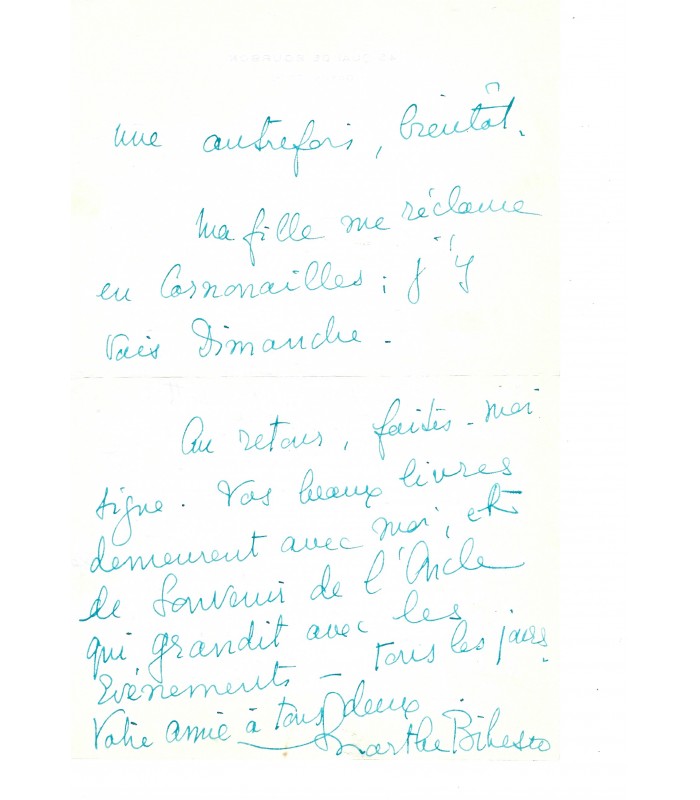 une autrefois, bientôt.
Ma fille me réclame
en Cornouailles ; j'y
vais Dimanche -
Au retour, faites-moi
signe. Vos beaux livres
demeurent avec moi, et
le souvenir de l'Oncle
qui grandit avec les
Evénements - tous les jours.
Votre amie à tous deux
Marthe Bibesco